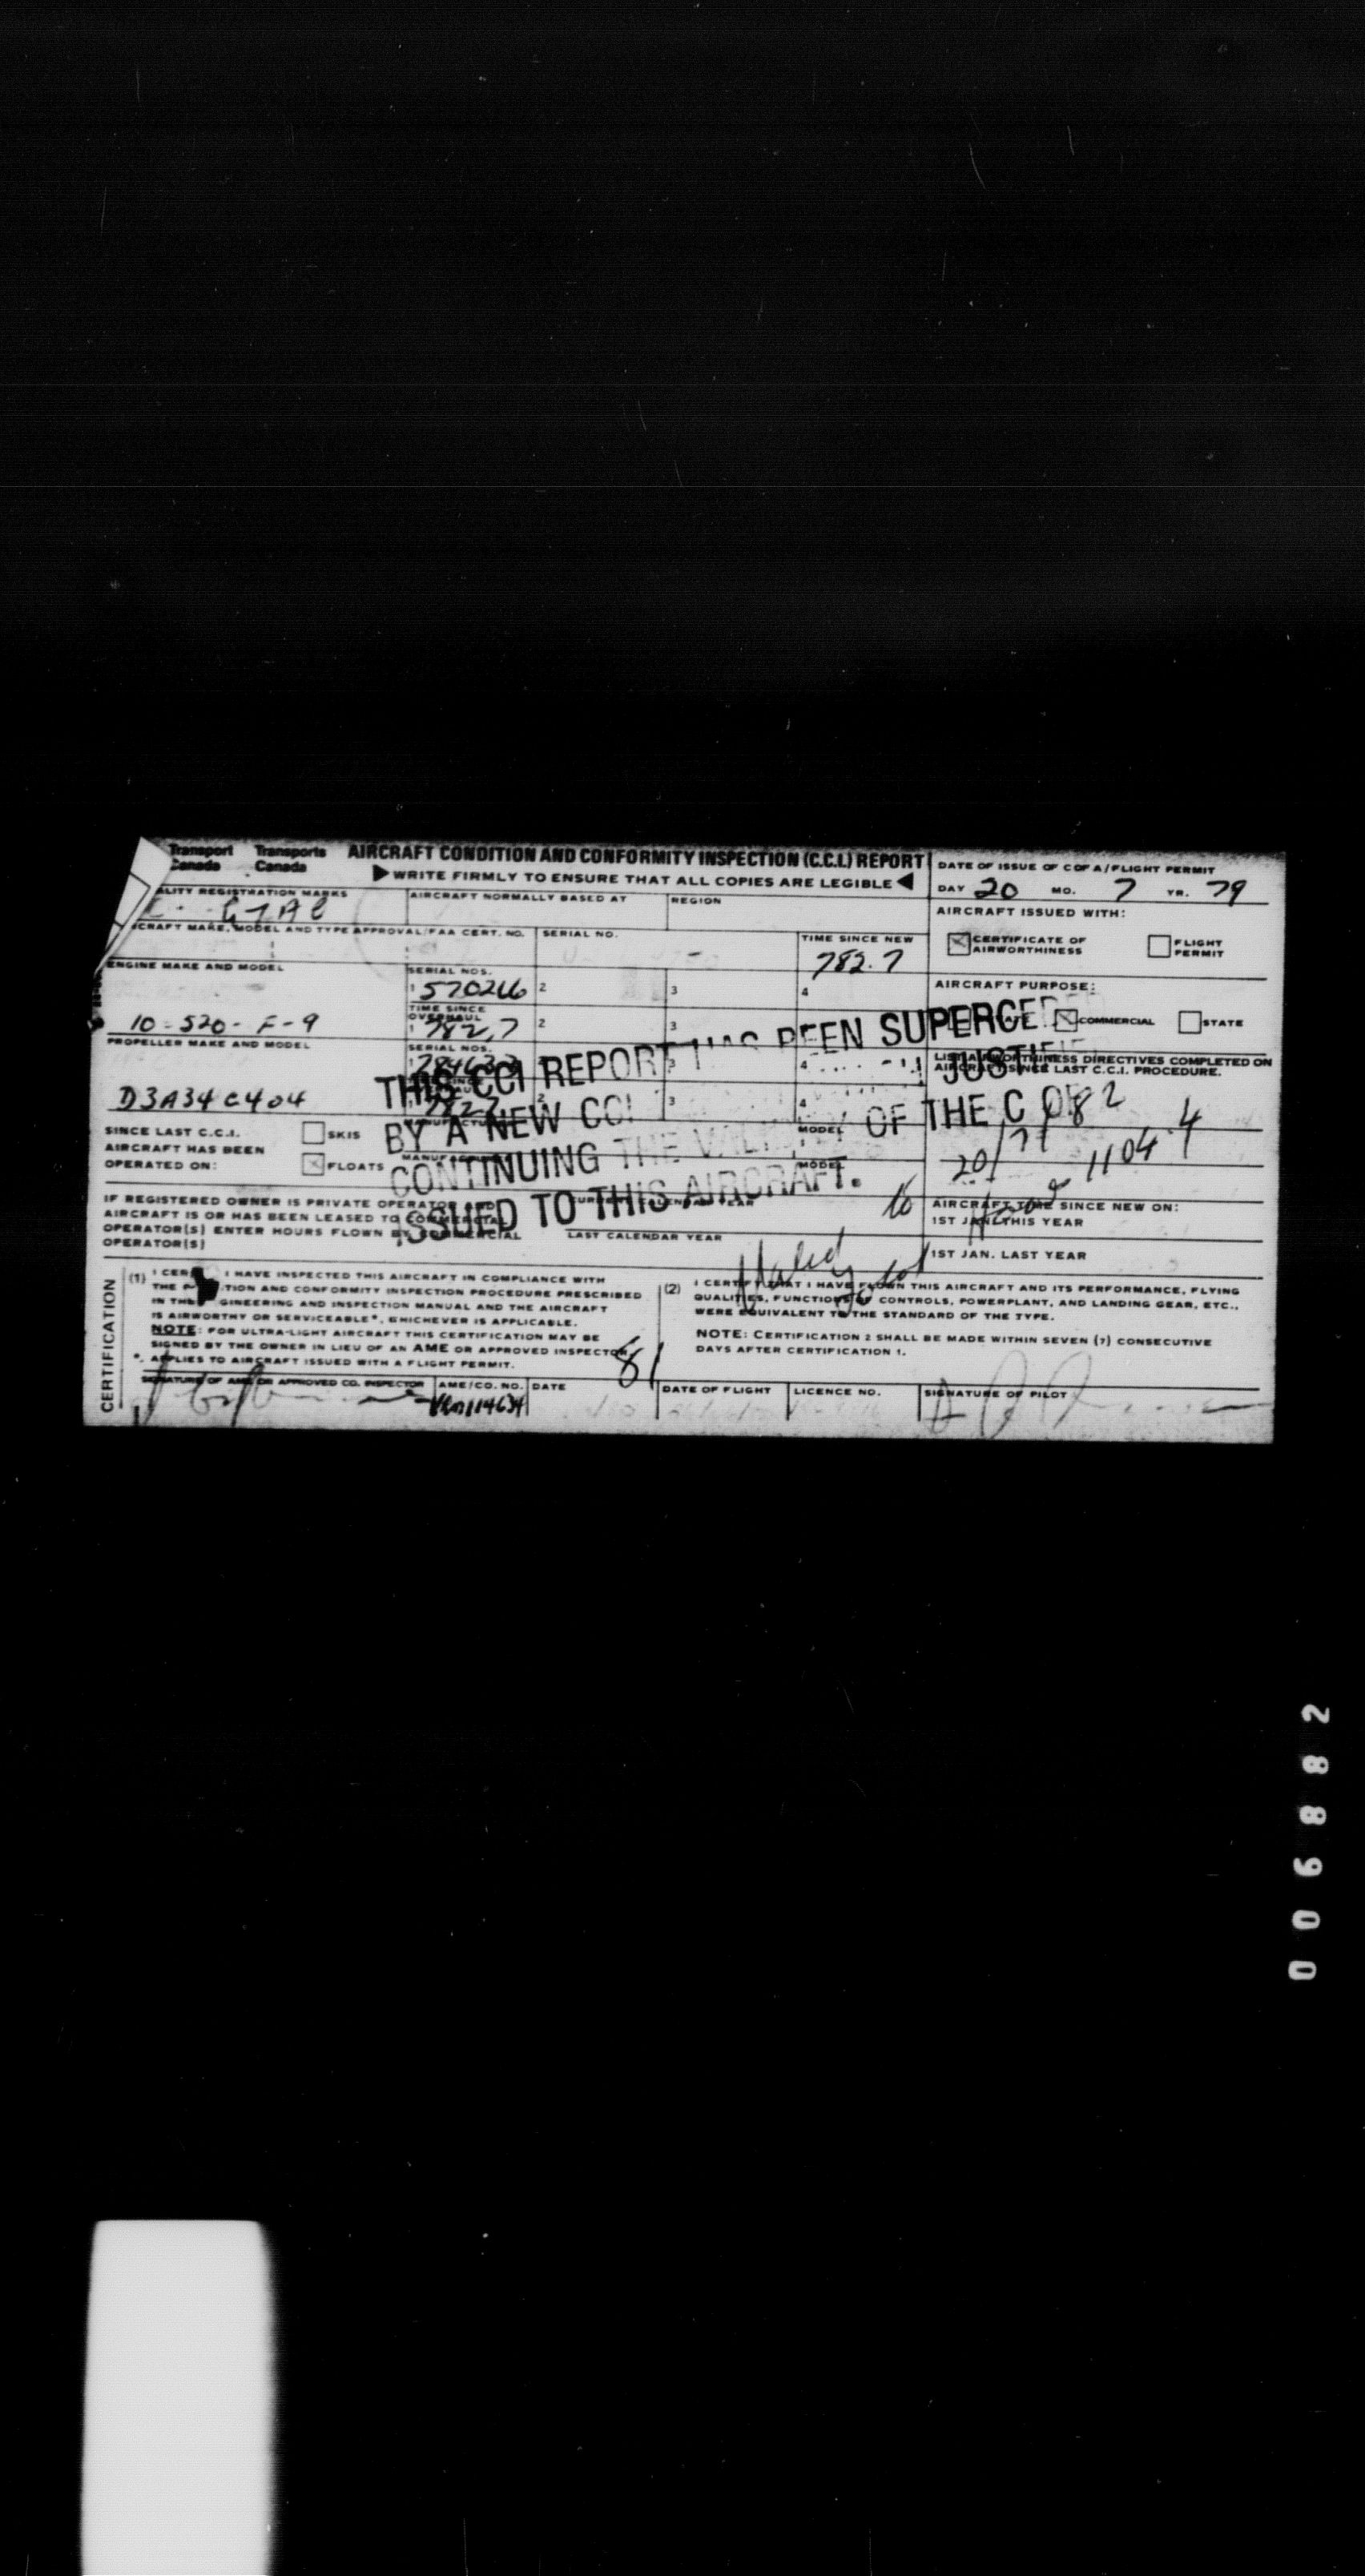 Transport Canada Transports Canada
AIRCRAFT CONDITION AND CONFORMITY INSPECTION (C.C.I.) REPORT
WRITE FIRMLY TO ENSURE THAT ALL COPIES ARE LEGIBLE
DATE OF ISSUE OF C OF A/FLIGHT PERMIT
DAY 20 MO. 7 YR. 79
ALITY REGISTRATION MARKS
AIRCRAFT NORMALLY BASED AT
REGION
AIRCRAFT ISSUED WITH:
CERTIFICATE OF AIRWORTHINESS
FLIGHT PERMIT
CRAFT MAKE, MODEL AND TYPE APPROVAL/FAA CERT. NO.
SERIAL NO.
TIME SINCE NEW
782.7
ENGINE MAKE AND MODEL
SERIAL NOS.
1 2 3 4
AIRCRAFT PURPOSE:
COMMERCIAL
STATE
10-520-F-9
TIME SINCE OVERHAUL
1 782.7 2 3
PROPELLER MAKE AND MODEL
SERIAL NOS.
4
LIST AIRWORTHINESS DIRECTIVES COMPLETED ON
AIRCRAFT SINCE LAST C.C.I. PROCEDURE.
D3A34C404
2 3 4
THIS CCI REPORT HAS BEEN SUPERCE
BY A NEW CCI JUSTIFI
CONTINUING THE VALI OF THE C OF
ISSUED TO THIS AIRCRAFT.
SINCE LAST C.C.I.
AIRCRAFT HAS BEEN
OPERATED ON:
SKIS
FLOATS
MODEL
MODEL
1104.4
IF REGISTERED OWNER IS PRIVATE OPERATOR
AIRCRAFT IS OR HAS BEEN LEASED TO COMMERCIAL
OPERATOR(S) ENTER HOURS FLOWN BY COMMERCIAL
OPERATOR(S)
LAST CALENDAR YEAR
AIRCRAFT TIME SINCE NEW ON:
1ST JAN. THIS YEAR
1ST JAN. LAST YEAR
CERTIFICATION
(1) I CER I HAVE INSPECTED THIS AIRCRAFT IN COMPLIANCE WITH
THE TION AND CONFORMITY INSPECTION PROCEDURE PRESCRIBED
IN THE GINEERING AND INSPECTION MANUAL AND THE AIRCRAFT
IS AIRWORTHY OR SERVICEABLE*, WHICHEVER IS APPLICABLE.
NOTE: FOR ULTRA-LIGHT AIRCRAFT THIS CERTIFICATION MAY BE
SIGNED BY THE OWNER IN LIEU OF AN AME OR APPROVED INSPECTOR
*. APPLIES TO AIRCRAFT ISSUED WITH A FLIGHT PERMIT.
(2) I CERTIFY THAT I HAVE FLOWN THIS AIRCRAFT AND ITS PERFORMANCE, FLYING
QUALITIES, FUNCTIONS OF CONTROLS, POWERPLANT, AND LANDING GEAR, ETC.,
WERE EQUIVALENT TO THE STANDARD OF THE TYPE.
NOTE: CERTIFICATION 2 SHALL BE MADE WITHIN SEVEN (7) CONSECUTIVE
DAYS AFTER CERTIFICATION 1.
81
SIGNATURE OF AME OR APPROVED CO. INSPECTOR
AME/CO. NO.
DATE
DATE OF FLIGHT
LICENCE NO.
SIGNATURE OF PILOT
006882